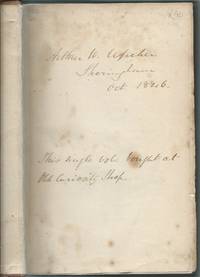 Arthur W. Upcher
Sheringham
Oct 1846.
This single vol. bought at
Old Curiosity Shop.